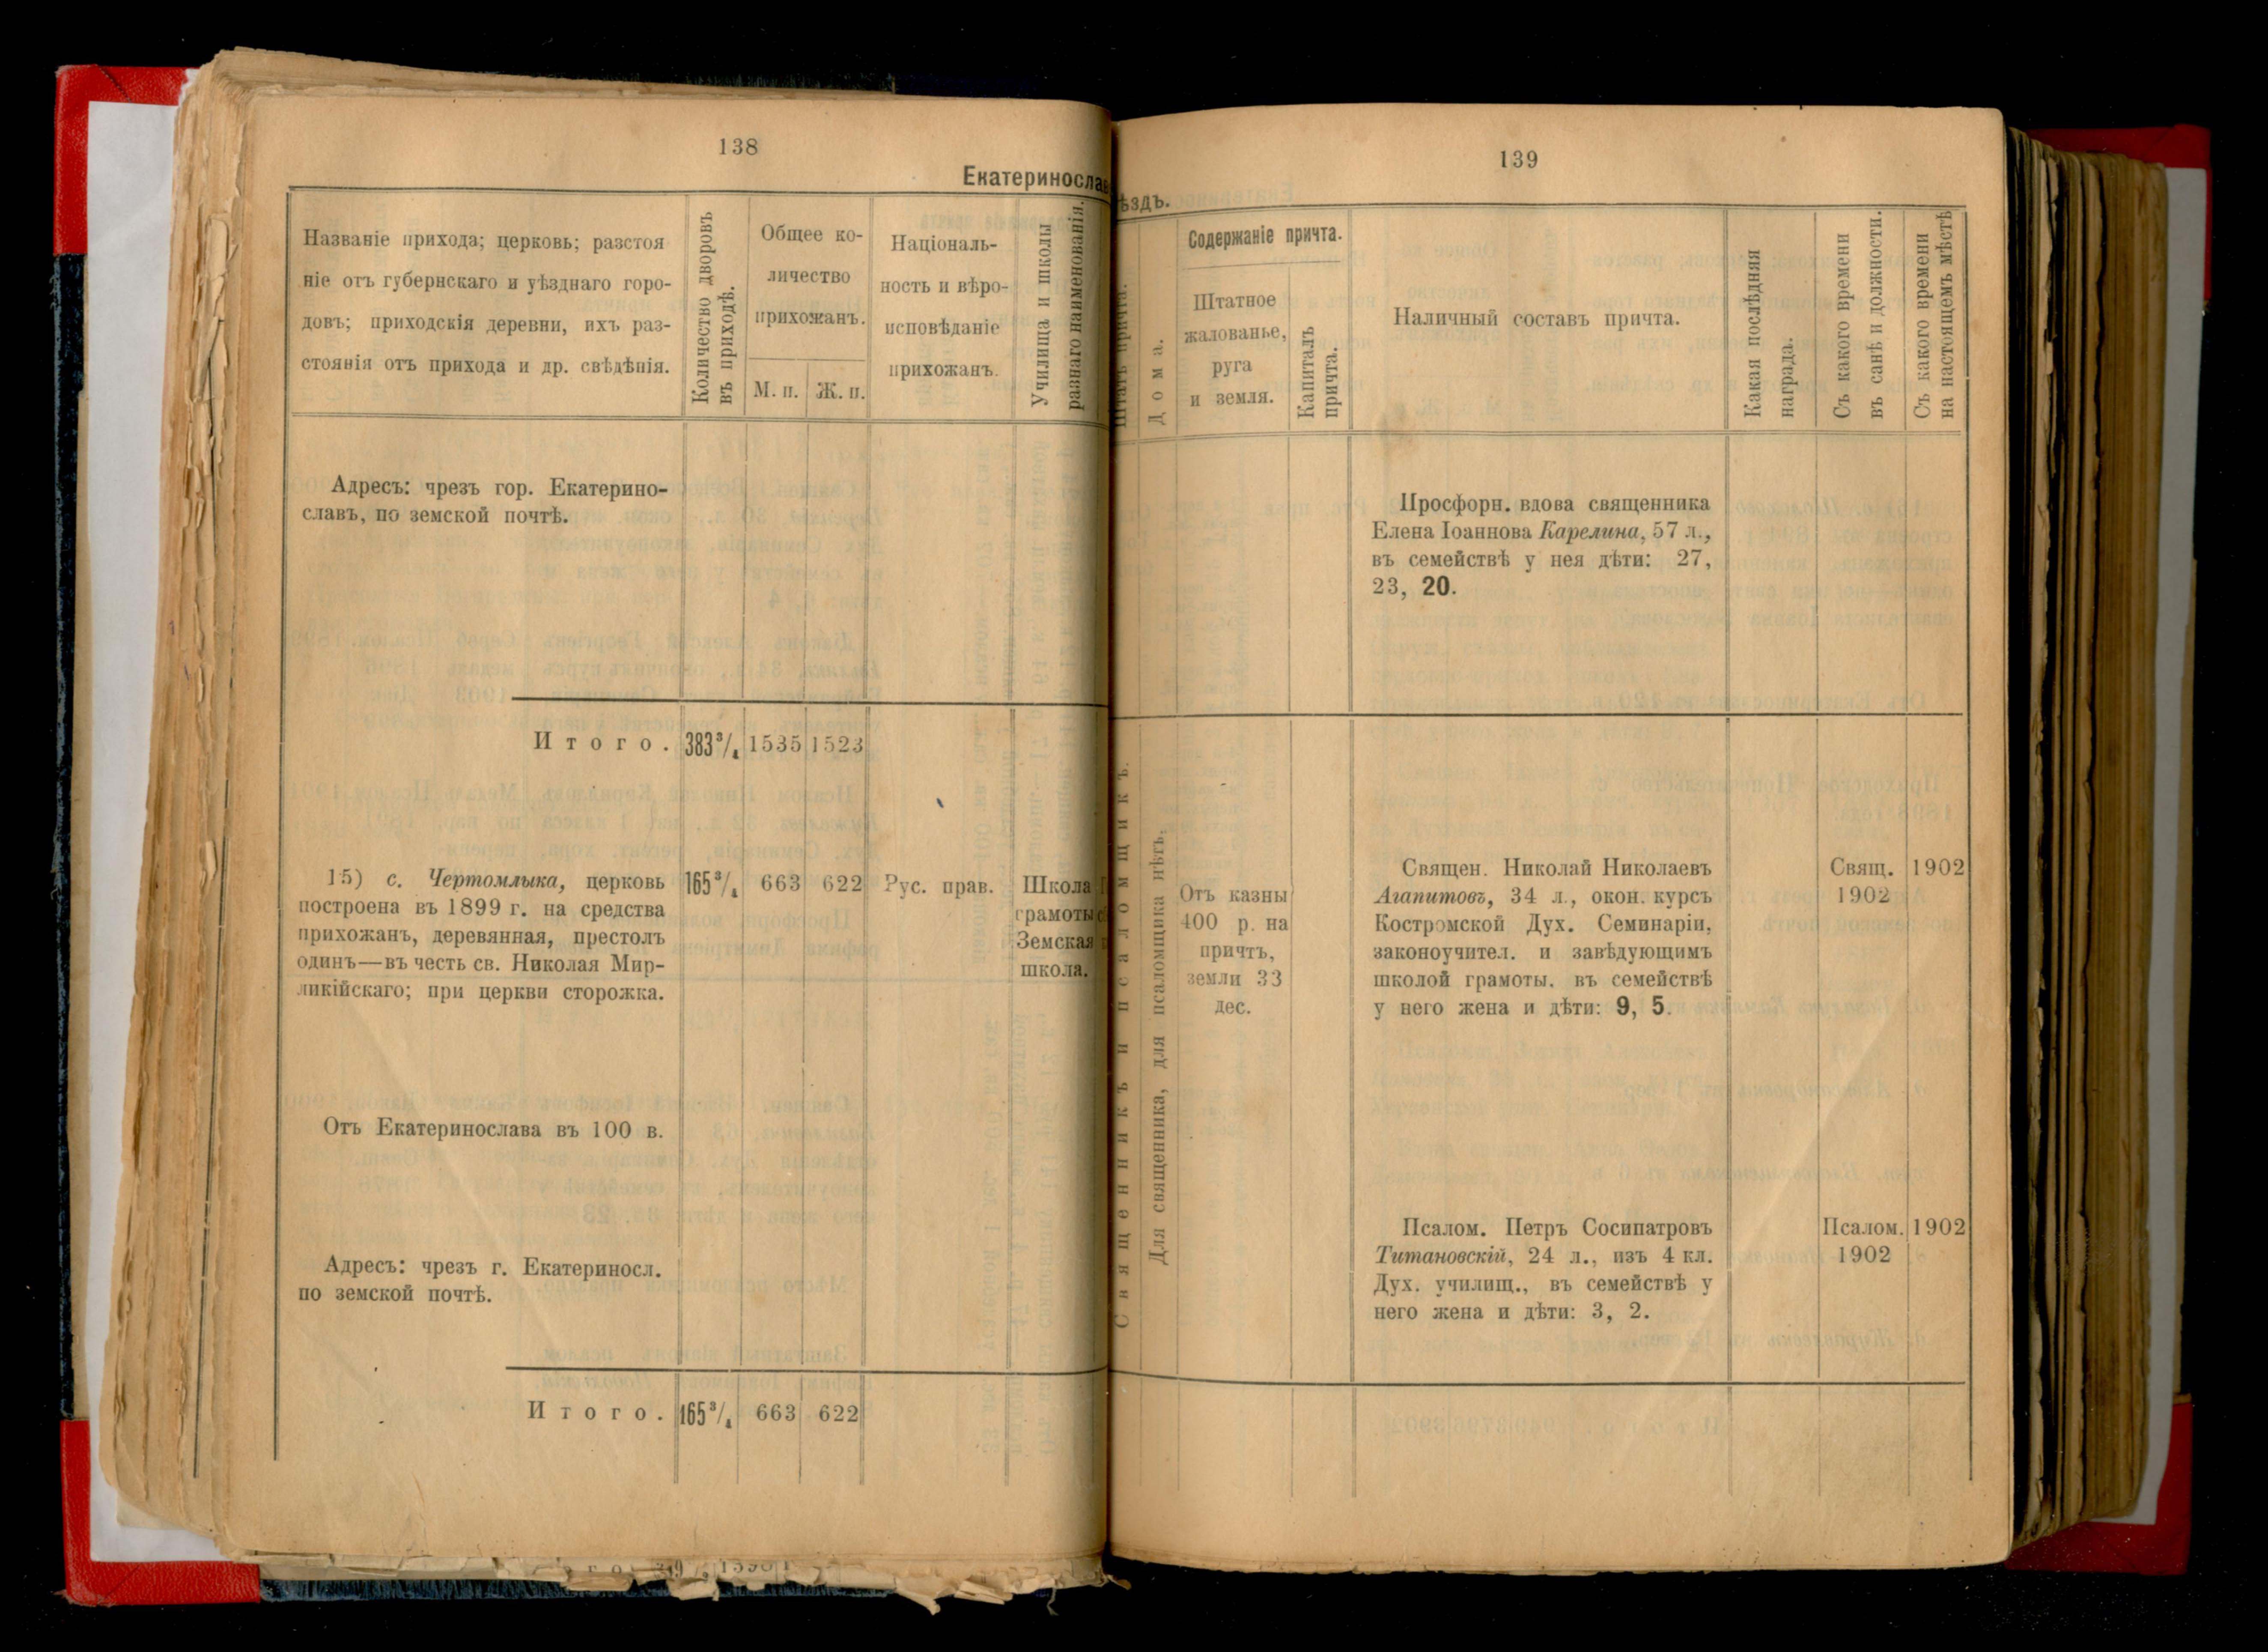 138
Екатериносла
Названіе прихода; церковь; разстоя
ніе отъ губернскаго и уѣзднаго горо-
довъ; приходскія деревни, ихъ раз-
стоянія отъ прихода и др. свѣдѣнія.
Количество дворовъ
въ приходѣ.
Общее ко-
личество
прихожанъ.
М. п.
Ж. п.
Націоналъ-
ность и вѣро-
исповѣданіе
прихожанъ.
Училища и школы
разнаго наименованія.
Адресъ: чрезъ гор. Екатерино-
славъ, по земской почтѣ.
Итого. 383³/₄ 1535 1523
15) с. Чертомлыка, церковь
построена въ 1899 г. на средства
прихожанъ, деревянная, престолъ
одинъ—въ честь св. Николая Мир-
ликійскаго; при церкви сторожка.
165³/₄ 663 622 Рус. прав.
Школа
грамоты
Земская
школа.
Отъ Екатеринослава въ 100 в.
Адресъ: чрезъ г. Екатериносл.
по земской почтѣ.
Итого. 165³/₄ 663 622
139
ѣздъ.
Штатъ причта.
Дома.
Содержаніе причта.
Штатное
жалованье,
руга
и земля.
Капиталъ
причта.
Наличный составъ причта.
Какая послѣдняя
награда.
Съ какого времени
въ санѣ и должности.
Съ какого времени
на настоящемъ мѣстѣ
Просфорн. вдова священника
Елена Іоаннова Карелина, 57 л.,
въ семействѣ у нея дѣти: 27,
23, 20.
Священникъ и псаломщикъ.
Для священника, для псаломщика нѣтъ.
Отъ казны
400 р. на
причтъ,
земли 33
дес.
Священ. Николай Николаевъ
Агапитовъ, 34 л., окон. курсъ
Костромской Дух. Семинаріи,
законоучител. и завѣдующимъ
школой грамоты. въ семействѣ
у него жена и дѣти: 9, 5.
Свящ. 1902
1902
Псалом. Петръ Сосипатровъ
Титановскій, 24 л., изъ 4 кл.
Дух. училищ., въ семействѣ у
него жена и дѣти: 3, 2.
Псалом. 1902
1902